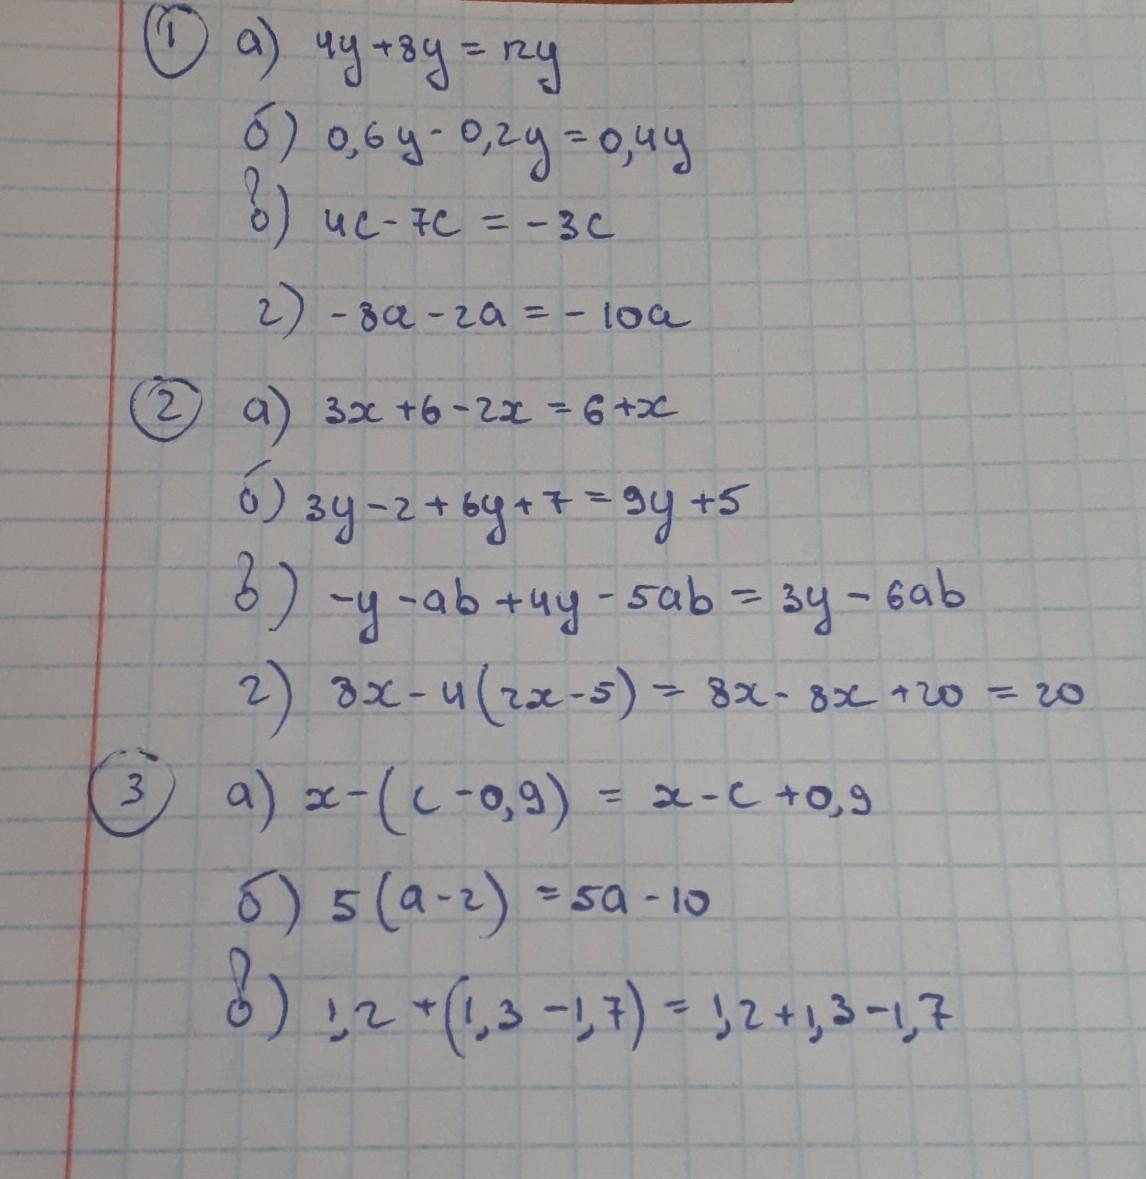 ① а) 4y+8y=12y
б) 0,6y-0,2y=0,4y
в) 4c-7c=-3c
г) -8a-2a=-10a
② а) 3x+6-2x=6+x
б) 3y-2+6y+7=9y+5
в) -y-ab+4y-5ab=3y-6ab
г) 8x-4(2x-5)=8x-8x+20=20
③ а) x-(c-0,9)=x-c+0,9
б) 5(a-2)=5a-10
в) 1,2+(1,3-1,7)=1,2+1,3-1,7